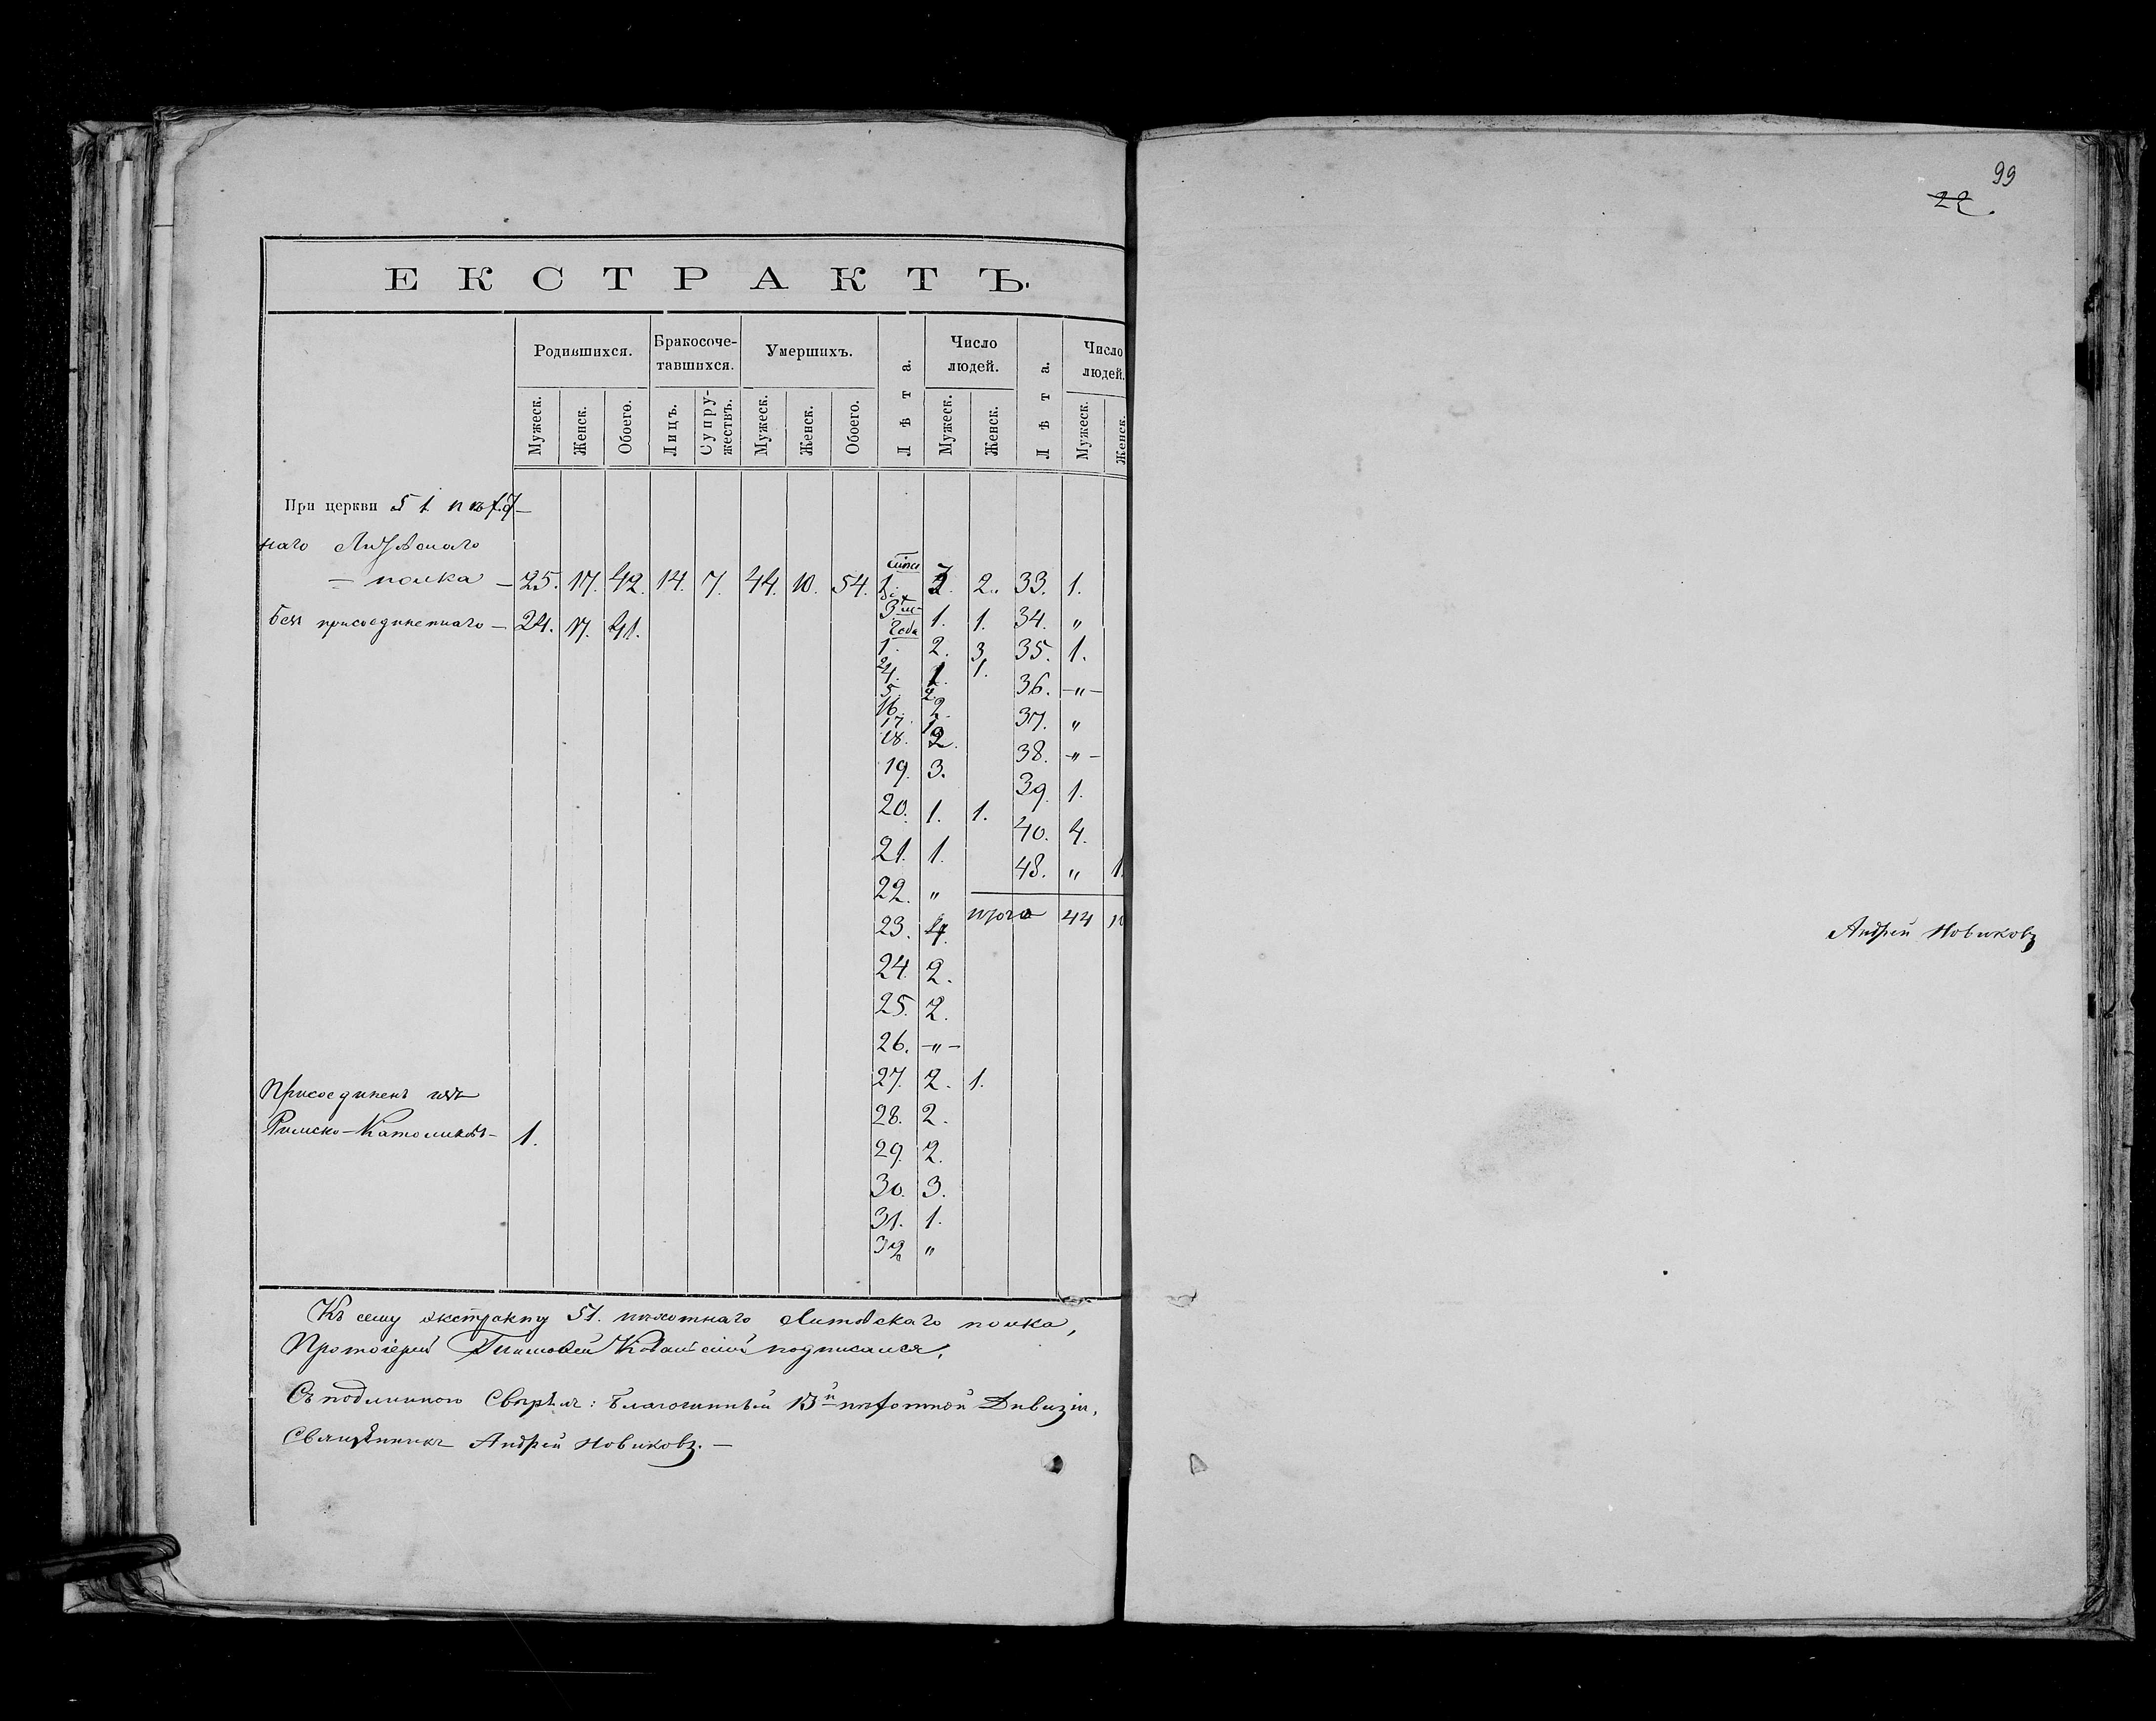 99
22
ЕКСТРАКТЪ.
Родившихся. Бракосоче-тавшихся. Умершихъ. Лѣта. Число людей. Лѣта. Число людей.
Мужеск. Женск. Обоего. Лицъ. Супру-жествъ. Мужеск. Женск. Обоего. Мужеск. Женск. Мужеск. Женск.
При церкви 51 пѣхот-
наго Литовскаго
— полка — 25. 17. 42. 14. 7. 44. 10. 54. 1. 2. 33. 1.
Безъ присоединеннаго — 24. 17. 41. 3 1. 1. 34. „
Года
1. 2. 3. 35. 1.
4. 1. 1. 36. —„—
5. 2.
16. 2. 37. „
17. 1.
18. 2. 38. —„—
19. 3. 39. 1.
20. 1. 1. 40. 4.
21. 1. 48. „ 1.
22. „
23. 4. итого 44 10
24. 2.
25. 2.
26. —„—
27. 2. 1.
28. 2.
29. 2.
30. 3.
31. 1.
32 „
Присоединенъ изъ
Римско-Католиковъ — 1.
Къ сему экстракту 51. пѣхотнаго Литовскаго полка,
Протоіерей Тимофей подписался.
Съ подлиннымъ свѣрялъ: Благочинный 13й пѣхотной Дивизіи,
Священникъ Андрей Новиковъ. —
Андрей Новиковъ